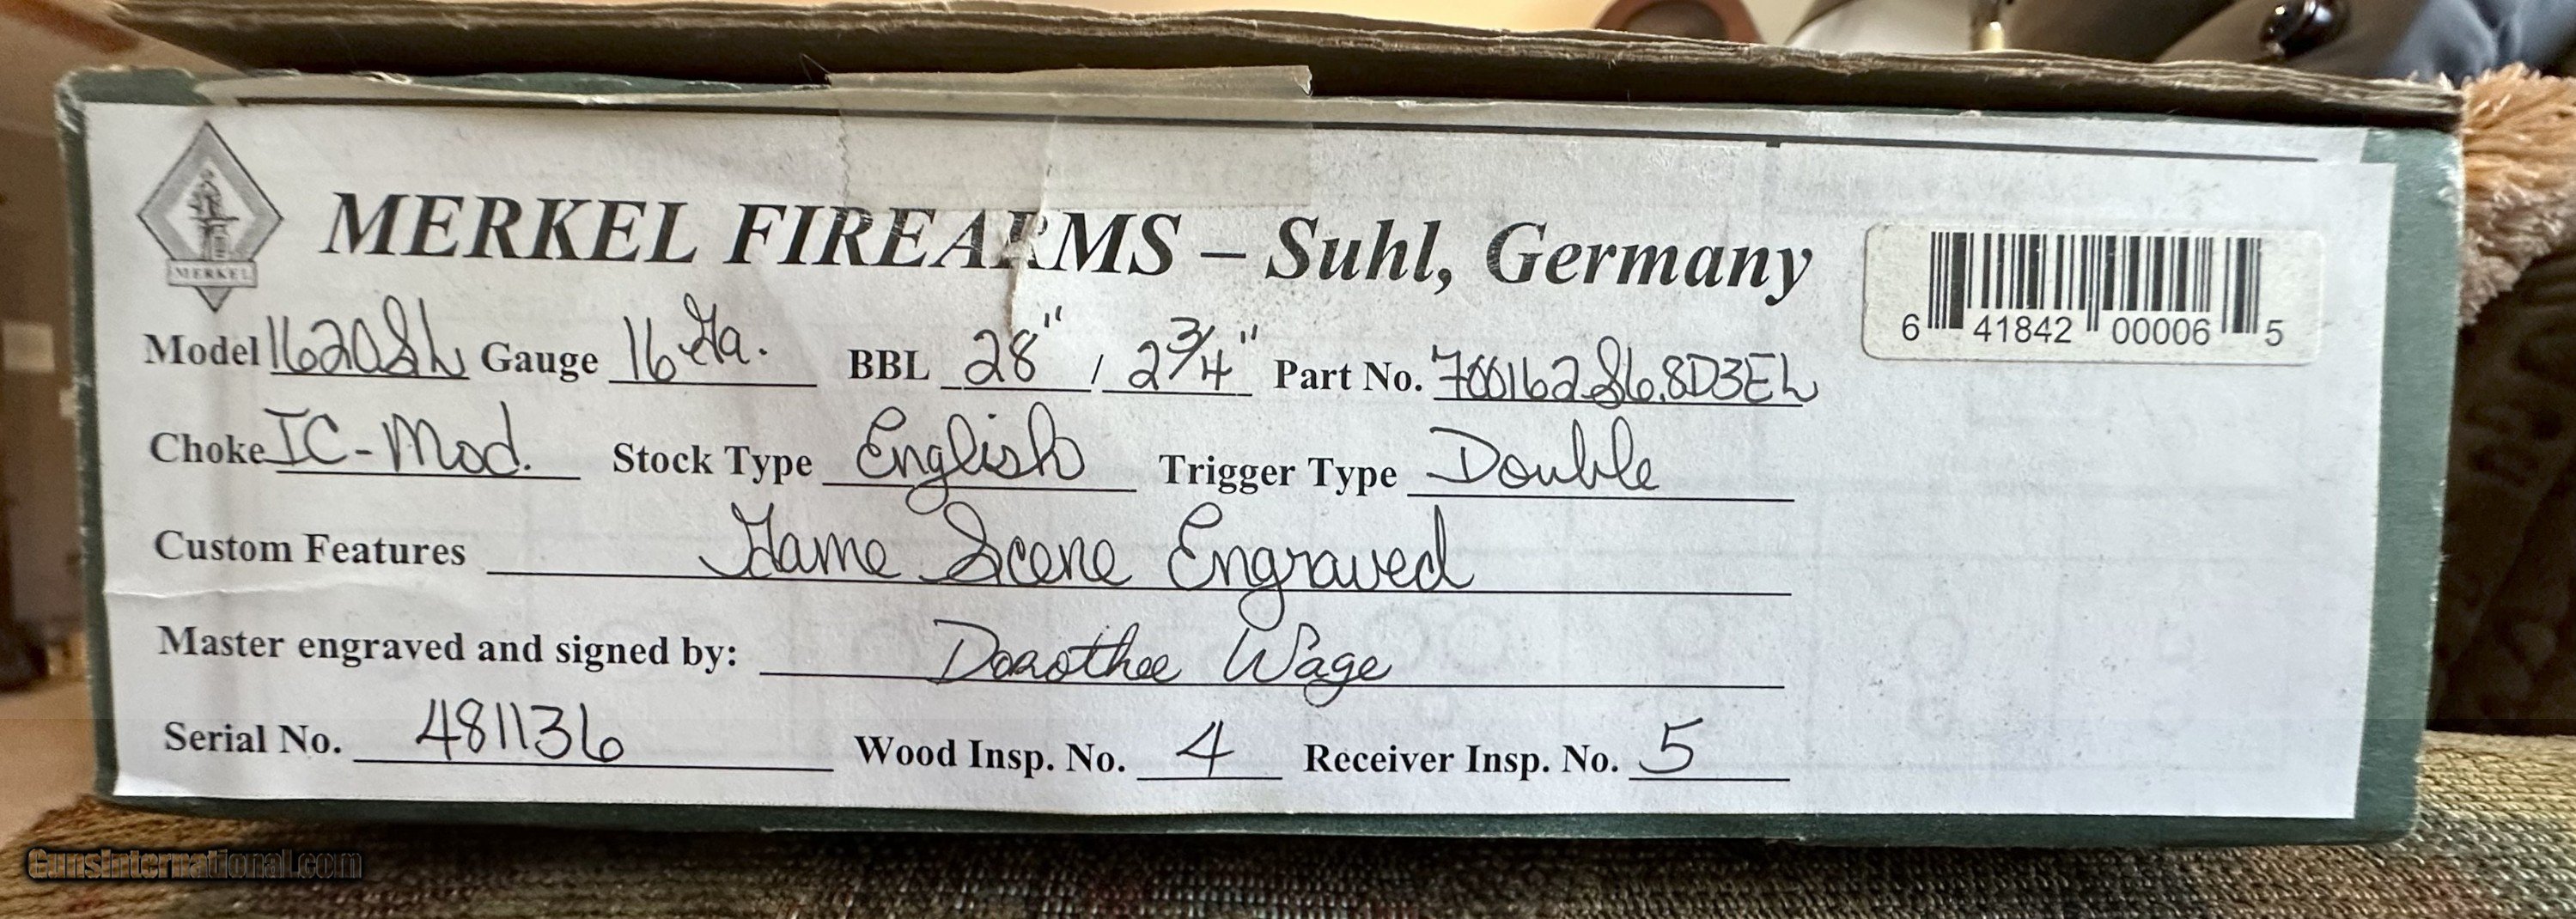 MERKEL
MERKEL FIREARMS – Suhl, Germany
6 41842 00006 5
Model 1620SL Gauge 16 Ga. BBL 28" / 2 3/4" Part No. 700162S6.8D3EL
Choke IC-Mod. Stock Type English Trigger Type Double
Custom Features Game Scene Engraved
Master engraved and signed by: Dorothee Wage
Serial No. 481136 Wood Insp. No. 4 Receiver Insp. No. 5
GunsInternational.com